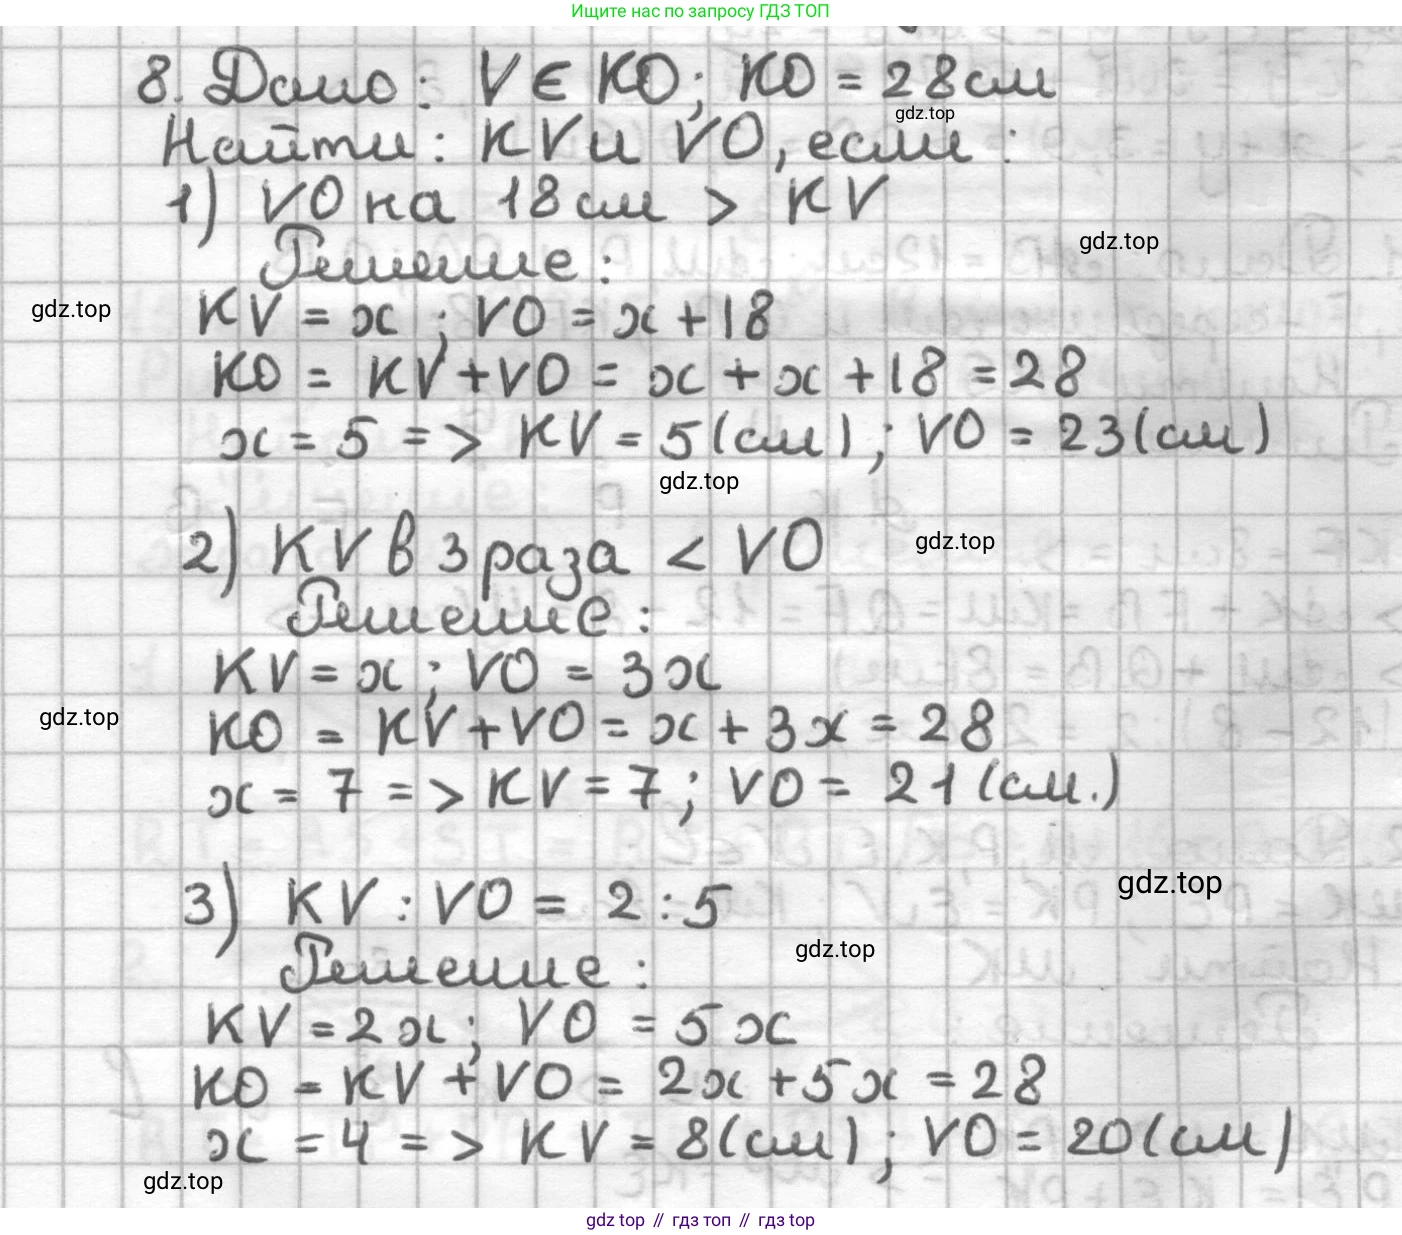 Ищите нас по запросу ГДЗ ТОП
8. Дано: V ∈ KO; KO = 28 см
gdz.top
Найти: KV и VO, если:
1) VO на 18 см > KV
gdz.top
Решение:
gdz.top
KV = x; VO = x + 18
KO = KV + VO = x + x + 18 = 28
x = 5 => KV = 5 (см); VO = 23 (см)
gdz.top
2) KV в 3 раза < VO
gdz.top
Решение:
KV = x; VO = 3x
gdz.top
KO = KV + VO = x + 3x = 28
x = 7 => KV = 7; VO = 21 (см.)
gdz.top
3) KV : VO = 2 : 5
gdz.top
Решение:
KV = 2x; VO = 5x
KO = KV + VO = 2x + 5x = 28
x = 4 => KV = 8 (см); VO = 20 (см)
gdz.top
gdz top // гдз топ // gdz top